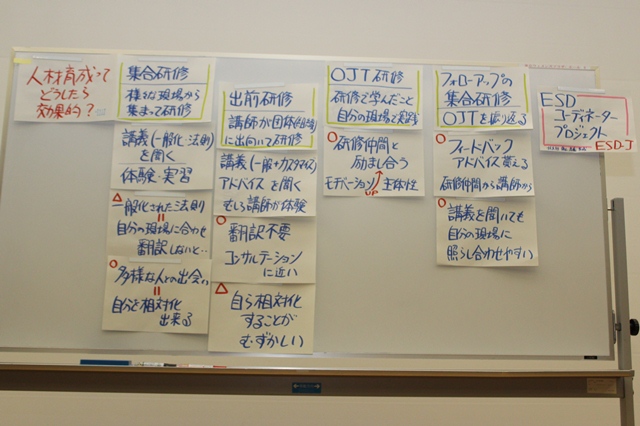 人材育成って
どうしたら
効果的?
集合研修
様々な現場から
集まって研修
講義(一般化・法則)
を聞く
体験・実習
△
一般化された法則
=
自分の現場に合わせ
翻訳しないと…
○
多様な人との出会い
=
自分を相対化
出来る
出前研修
講師が団体(自治体)
に出向いて研修
講義(一般+カスタマイズ)
アドバイスを聞く
むしろ講師が体験
○
翻訳不要
コンサルテーション
に近い
△
自ら相対化
することが
むずかしい
OJT研修
研修で学んだこと
自分の現場で実践
○
研修仲間と
励まし合う
モチベーションUP 主体性
フォローアップの
集合研修
OJTを振り返る
○
フィードバック
アドバイス貰える
研修仲間から講師から
○
講義を聞いても
自分の現場に
照らし合わせやすい
ESD
コーディネーター
プロジェクト
ESD-J